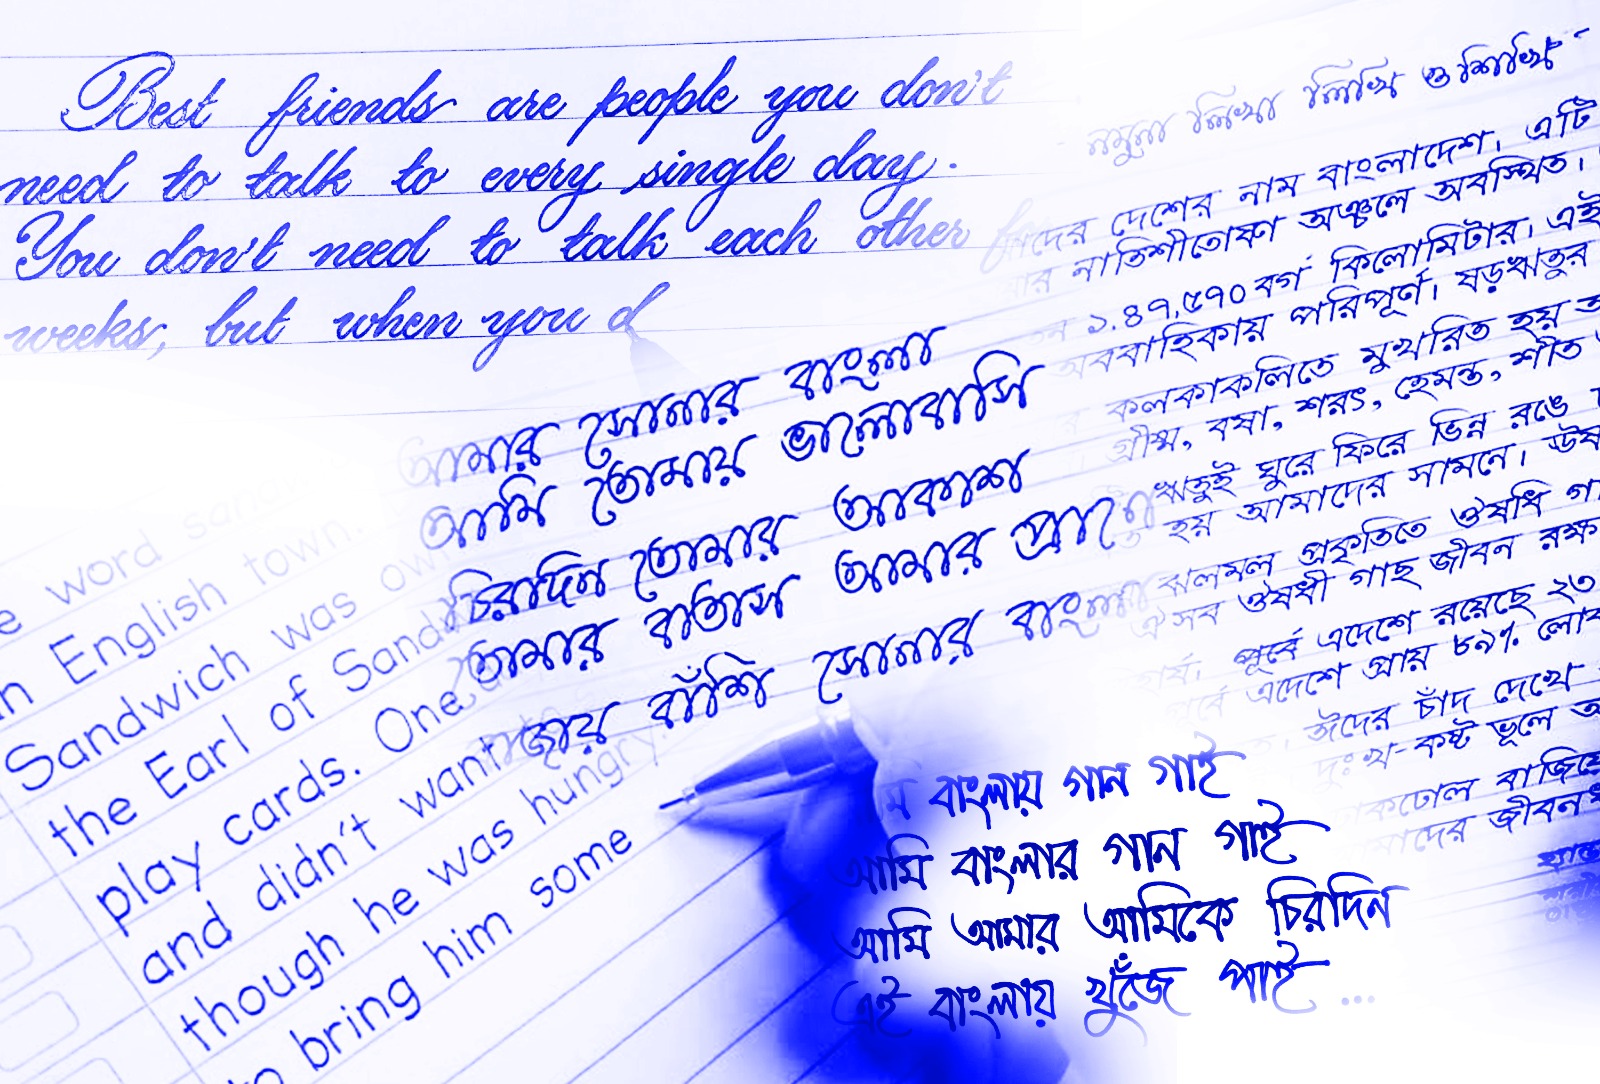 Best friends are people you don't
need to talk to every single day.
You don't need to talk each other
weeks, but when you d
নমুনা লিখা লিখি ও শিখি
দের দেশের নাম বাংলাদেশ। এটি
নাতিশীতোষ্ণ অঞ্চলে অবস্থিত।
১.৪৭.৫৭০ বর্গ কিলোমিটার। এই
অববাহিকায় পরিপূর্ণ। ষড়ঋতুর
কলকাকলিতে মুখরিত হয়
গ্রীষ্ম, বষা, শরৎ, হেমন্ত, শীত
ঋতুই ঘুরে ফিরে ভিন্ন রঙে
হয় আমাদের সামনে।
ঝলমল প্রকৃতিতে ঔষধি গা
ঐসব ঔষধী গাছ জীবন রক্ষ
পূর্বে এদেশে রয়েছে ২৩
পূর্বে এদেশে প্রায় ৮৯%
ঈদের চাঁদ দেখে
দুঃখ-কষ্ট ভূলে
ঢাকঢোল বাজিয়ে
জীবন
আমার সোনার বাংলা
আমি তোমায় ভালোবাসি
চিরদিন তোমার আকাশ
তোমার বাতাস আমার প্রাণে
বাজায় বাঁশি সোনার বাংলা
e word
n English town.
Sandwich was
the Earl of Sand
play cards. One
and didn't want
though he was hungry
to bring him some
ম বাংলায় গান গাই
আমি বাংলার গান গাই
আমি আমার আমিকে চিরদিন
এই বাংলায় খুঁজে পাই ...